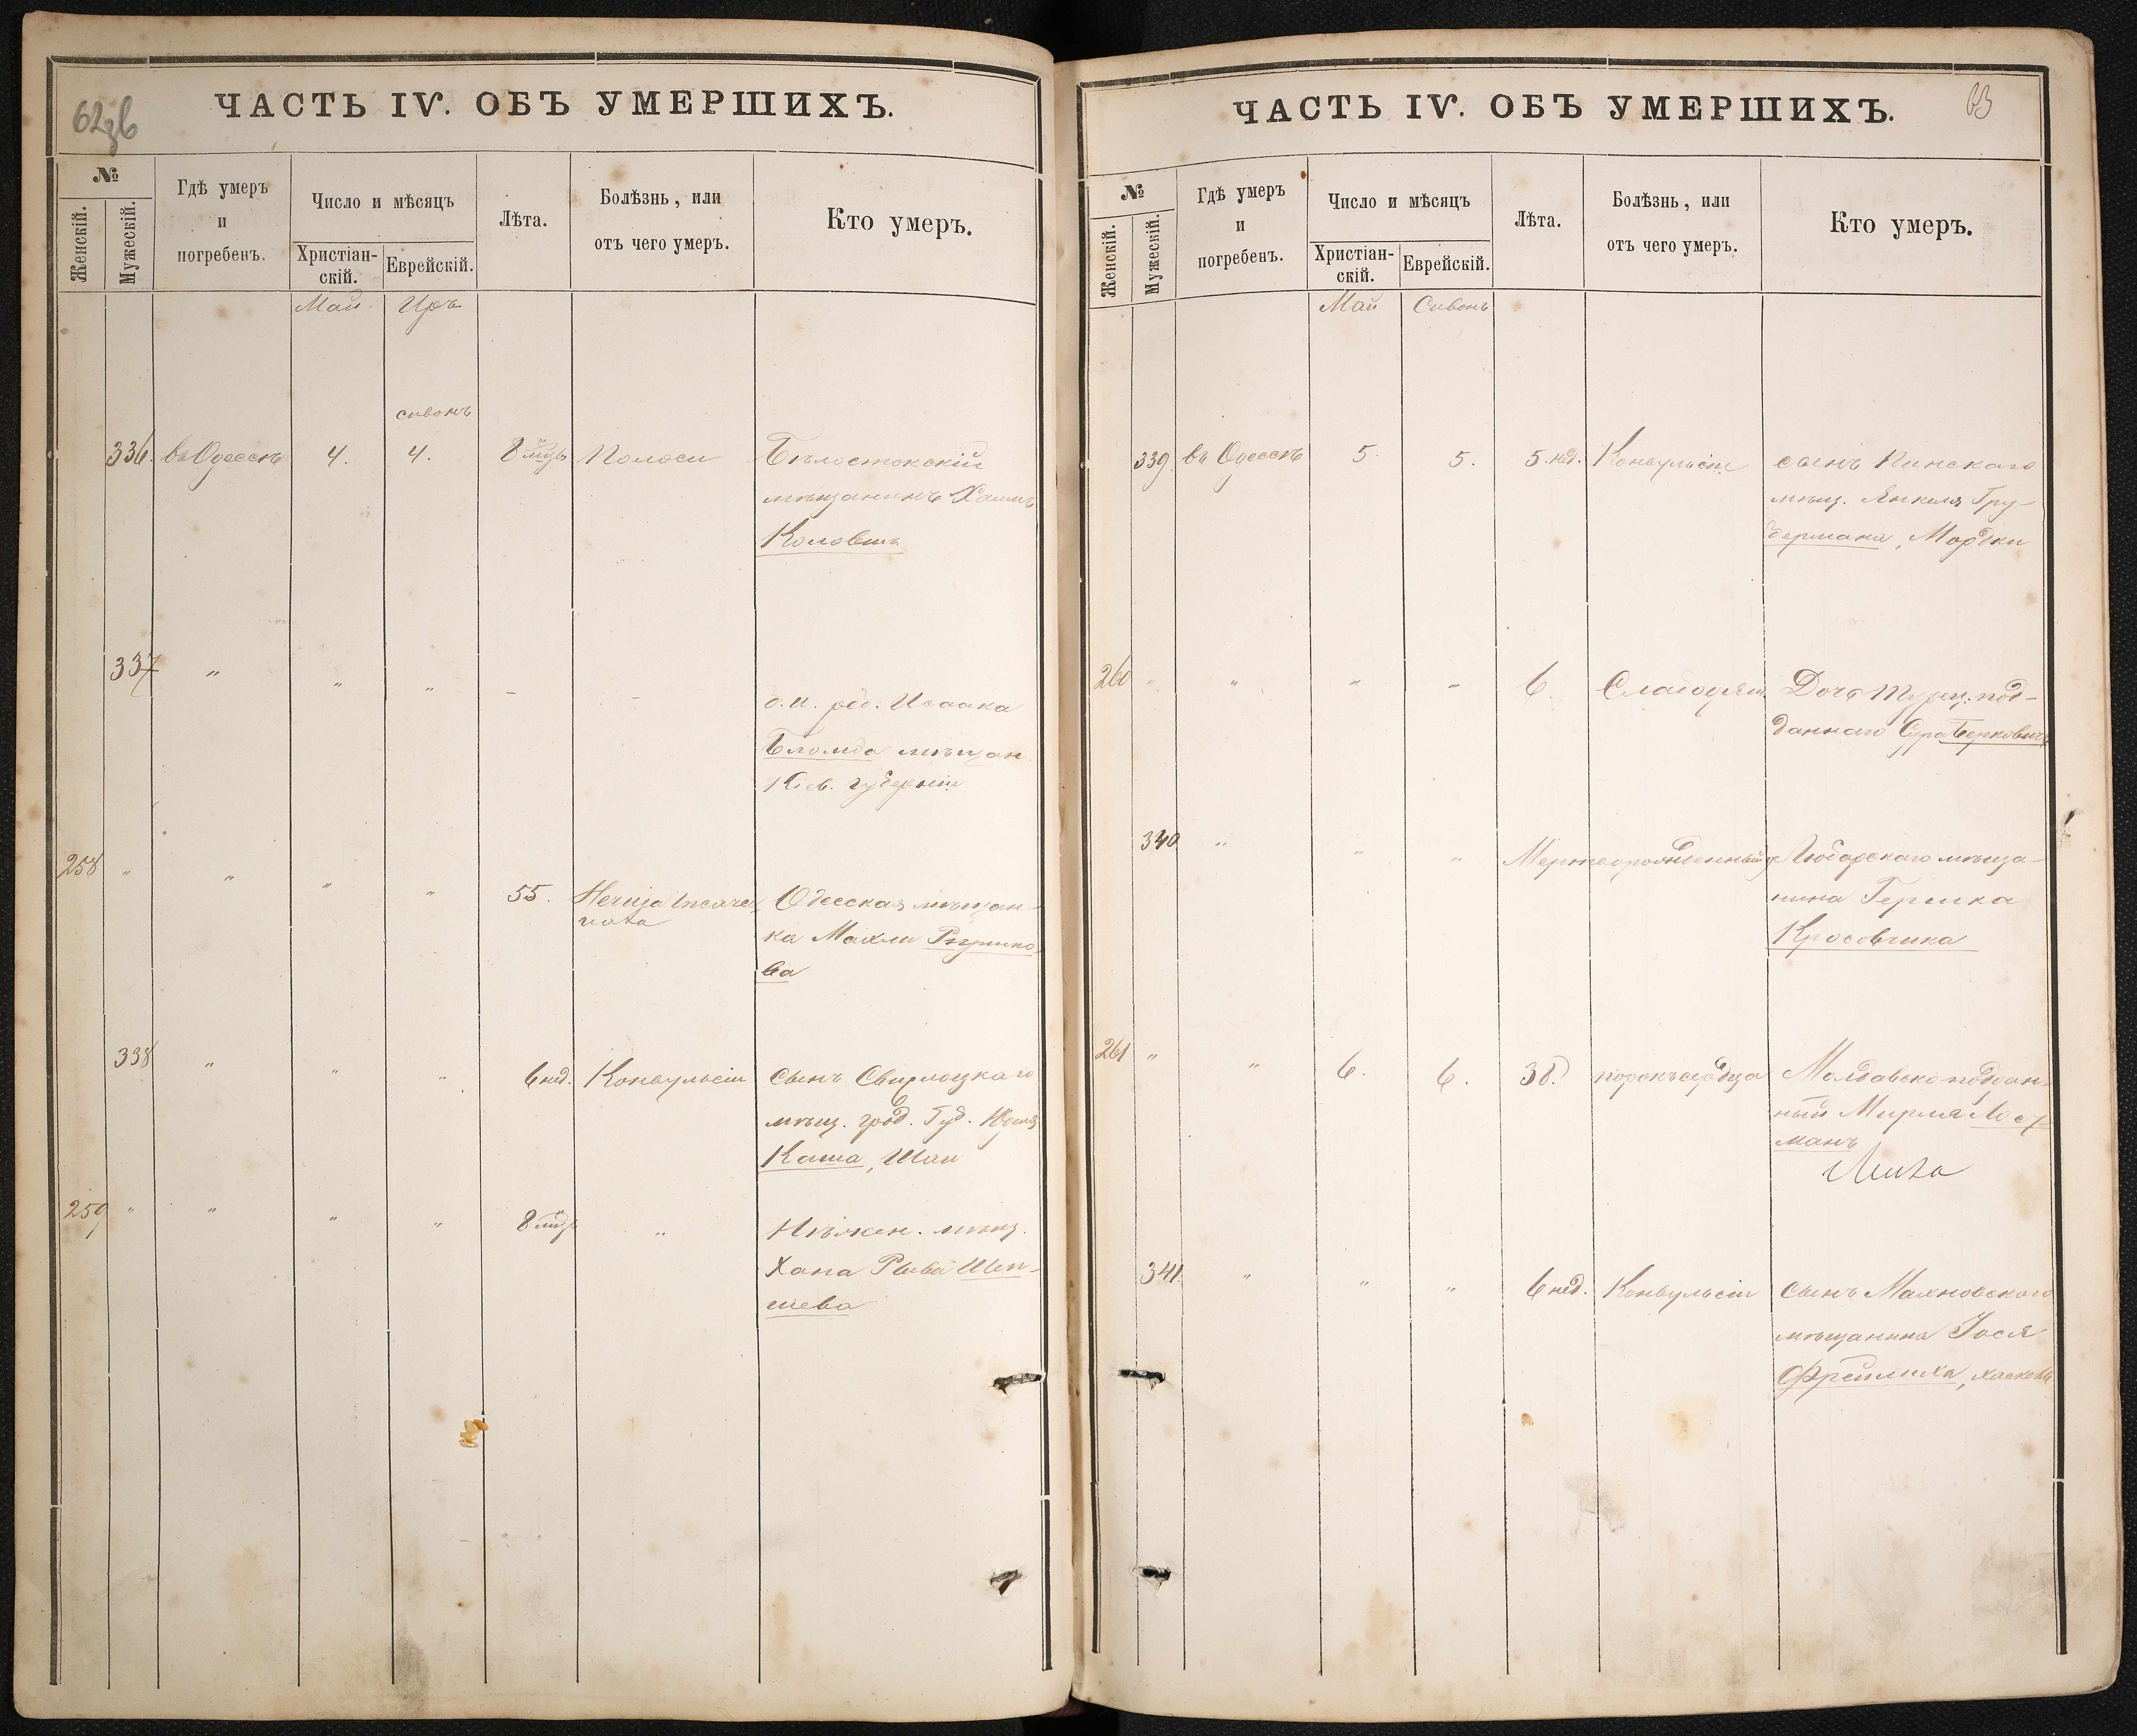 62зв
ЧАСТЬ IV. ОБЪ УМЕРШИХЪ.
№
Женскій.
Мужескій.
Гдѣ умеръ
и
погребенъ.
Число и мѣсяцъ
Христіан-
скій.
Еврейскій.
Лѣта.
Болѣзнь, или
отъ чего умеръ.
Кто умеръ.
Май Иръ
сивонъ
336. въ Одессѣ 4. 4. 8 мцъ Полоси Бѣлостокскій
мѣщанинъ Хаимъ
337 " " " - -
Исаака
мѣщан.
Кіев. губерніи
258 " " " " 55. Hernia incarce
rata Одесская мѣщан-
ка Махли
ва
338 " " " 6 нед. Конвульсіи сынъ Свирлоцкаго
мѣщ. грод. Губ.
Каша, Шаи
259 " " " " 8 мцъ " Нѣжен. мѣщ.
Хана Рыва Шеп-
шева
63
ЧАСТЬ IV. ОБЪ УМЕРШИХЪ.
№
Женскій.
Мужескій.
Гдѣ умеръ
и
погребенъ.
Число и мѣсяцъ
Христіан-
скій.
Еврейскій.
Лѣта.
Болѣзнь, или
отъ чего умеръ.
Кто умеръ.
Май Сивонъ
339. въ Одессѣ 5. 5. 5. нед. Конвульсіи сынъ Пинскаго
мѣщ. Янкеля Гру-
бермана, Мордки
260 " " " " 6. Дочь Турец. под-
даннаго Сура Берковичъ
340 " " " Мертворожденный Любарскаго мѣща-
нина Гершка
Кросовчика
261 " " 6. 6. 38. порокъ сердца Молдавско подан-
ный Мирля
манъ
341. " " " 6 нед. Конвульсіи сынъ Махновского
мѣщанина Іося
Фрейлиха, Хаскель